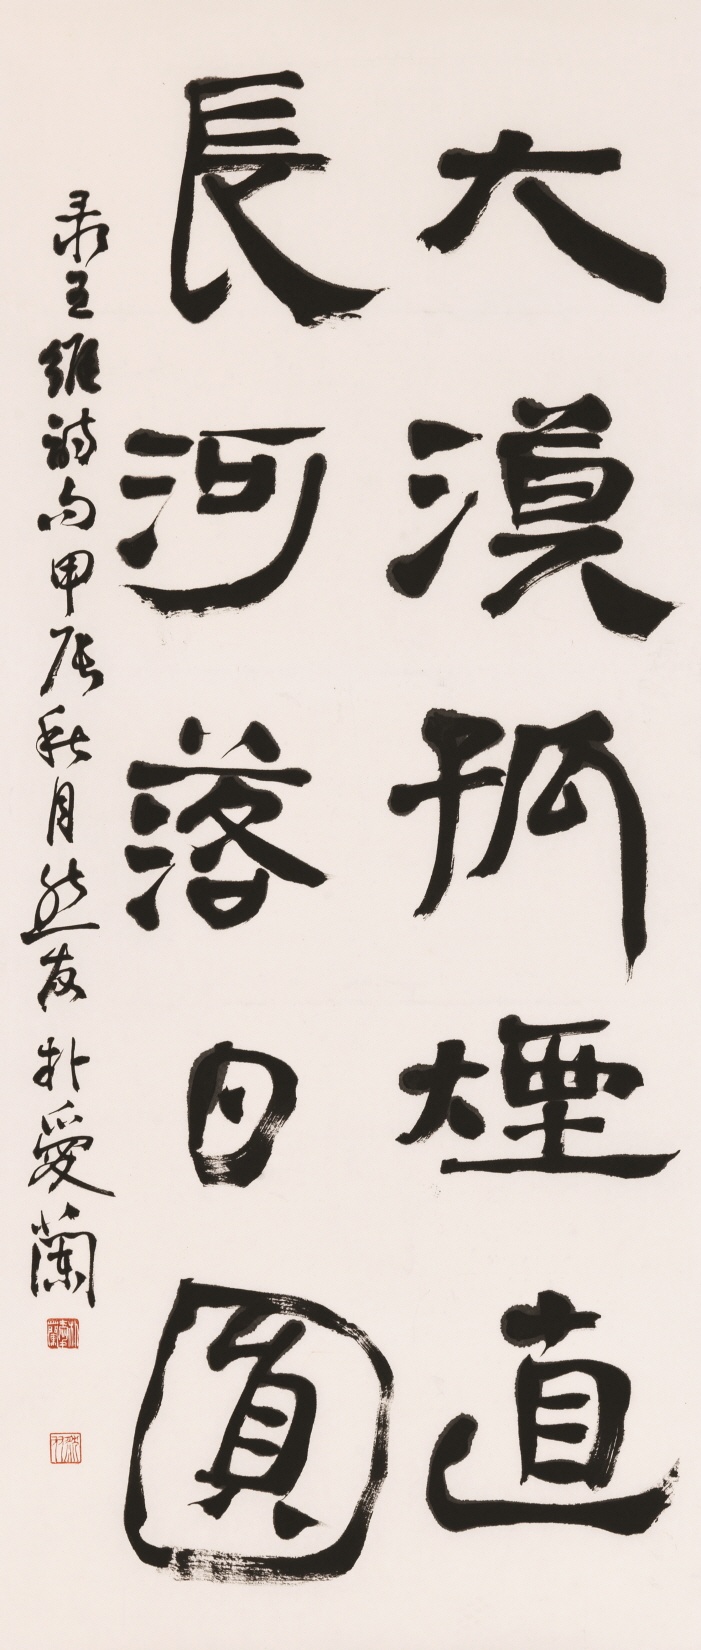 大漠孤煙直
長河落日圓
录王維詩句甲辰秋月然友朴愛蘭